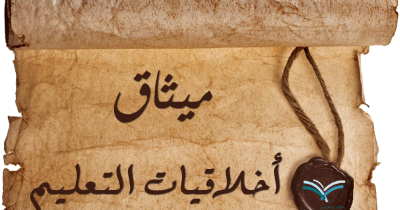 ميثاق
أخلاقيات التعليم